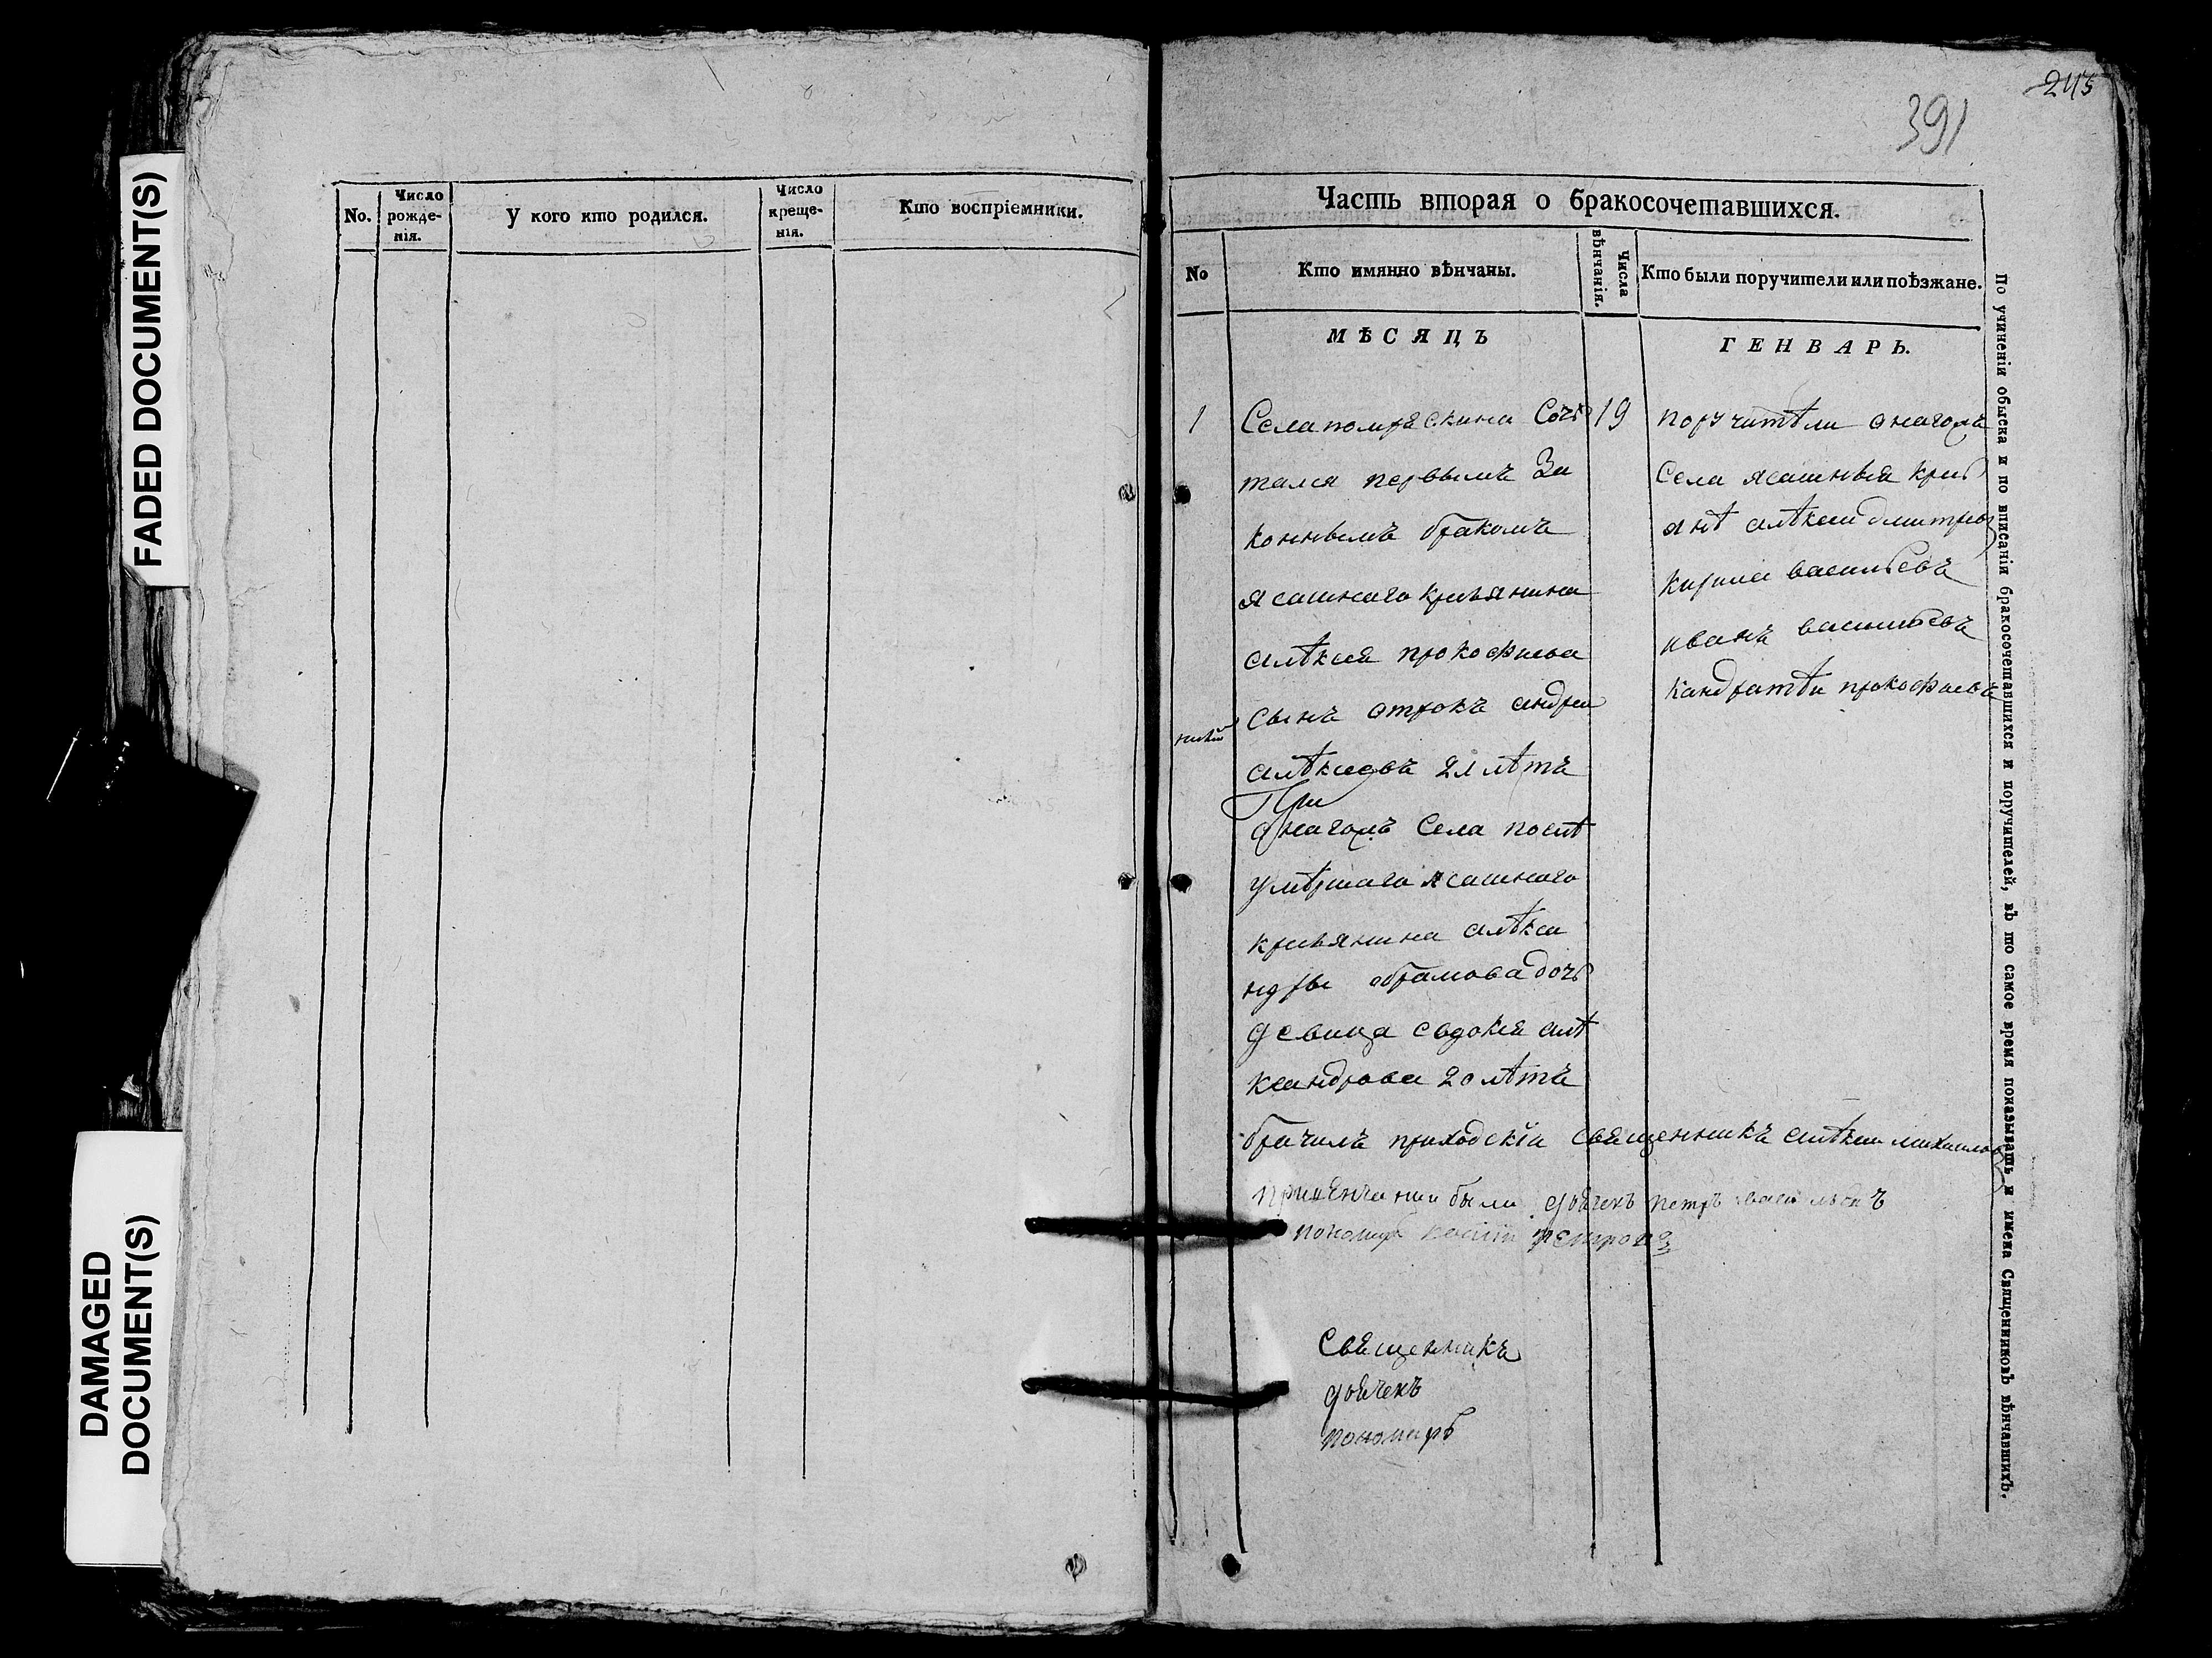 FADED DOCUMENT(S)
DAMAGED
DOCUMENT(S)
No.
Число
рожде-
нія.
У кого кто родился.
Число
креще-
нія.
Кто воспріемники.
245
391
Часть вторая о бракосочетавшихся.
No
Кто имянно вѣнчаны.
Числа
вѣнчанія.
Кто были поручители или поѣзжане.
МѢСЯЦЪ
ГЕНВАРЬ.
1
Села Сочѣ
тался первымъ За
коннымъ бракомъ
ясашнаго
алѣксея прокофиева
сынъ отрокъ андреи
алѣксѣевъ 21 лѣтъ
При
онагожъ Села послѣ
умѣршаго ясашнаго
алѣкса
ндры абрамова дочь
девица евдокия алѣ
ксандрова 20 лѣтъ
19
поручитѣли онагожъ
Села ясашныя
янѣ алѣксеи дмитрѣвъ
кирила васильевъ
иванъ васильевъ
кандратѣи прокофиевъ
брачилъ приходскiи священникъ алѣксеи михаиловъ
при венчании были дьячекъ петръ васильевъ
пономарь петровъ
Священникъ
дьячекъ
пономарь
По учиненіи обыска и по вписаніи бракосочетавшихся и поручителей, въ то самое время показывать и имена Священниковъ вѣнчавшихъ.